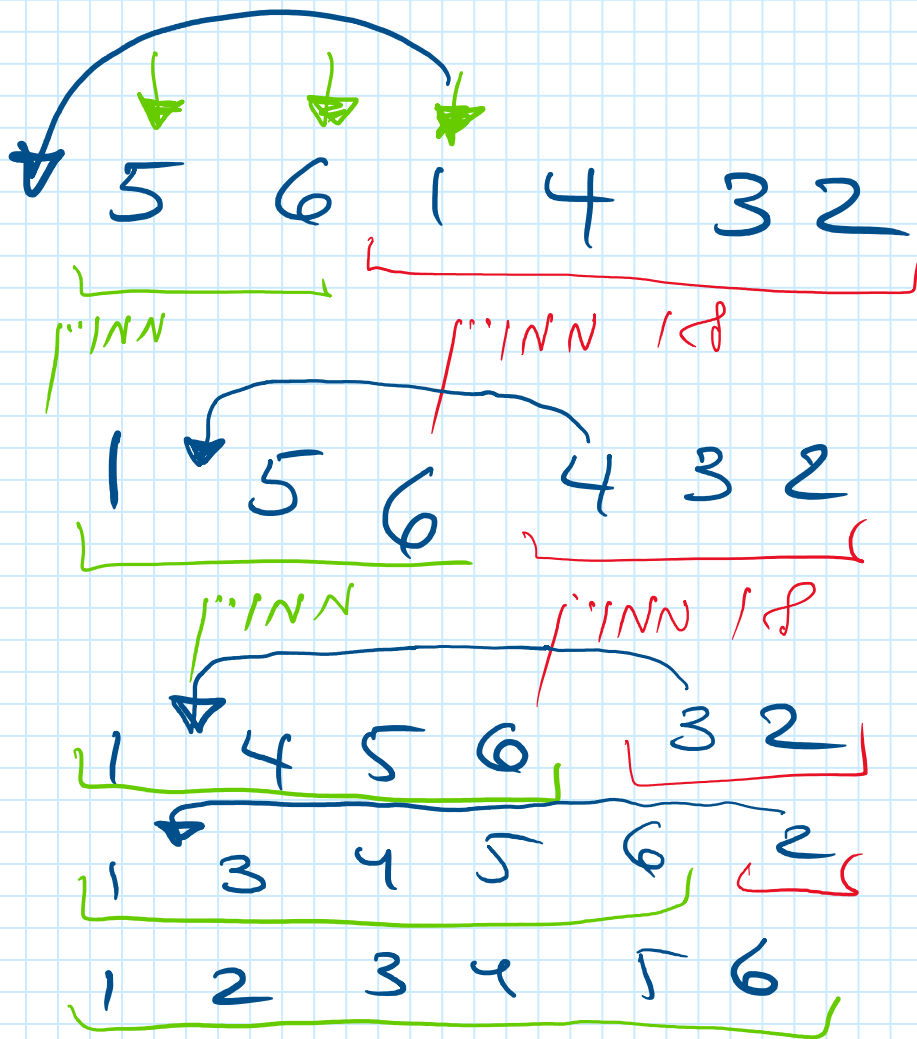 5 6 1 4 3 2
לא ממויין ממויין
1 5 6 4 3 2
לא ממויין ממויין
1 4 5 6 3 2
1 3 4 5 6 2
1 2 3 4 5 6